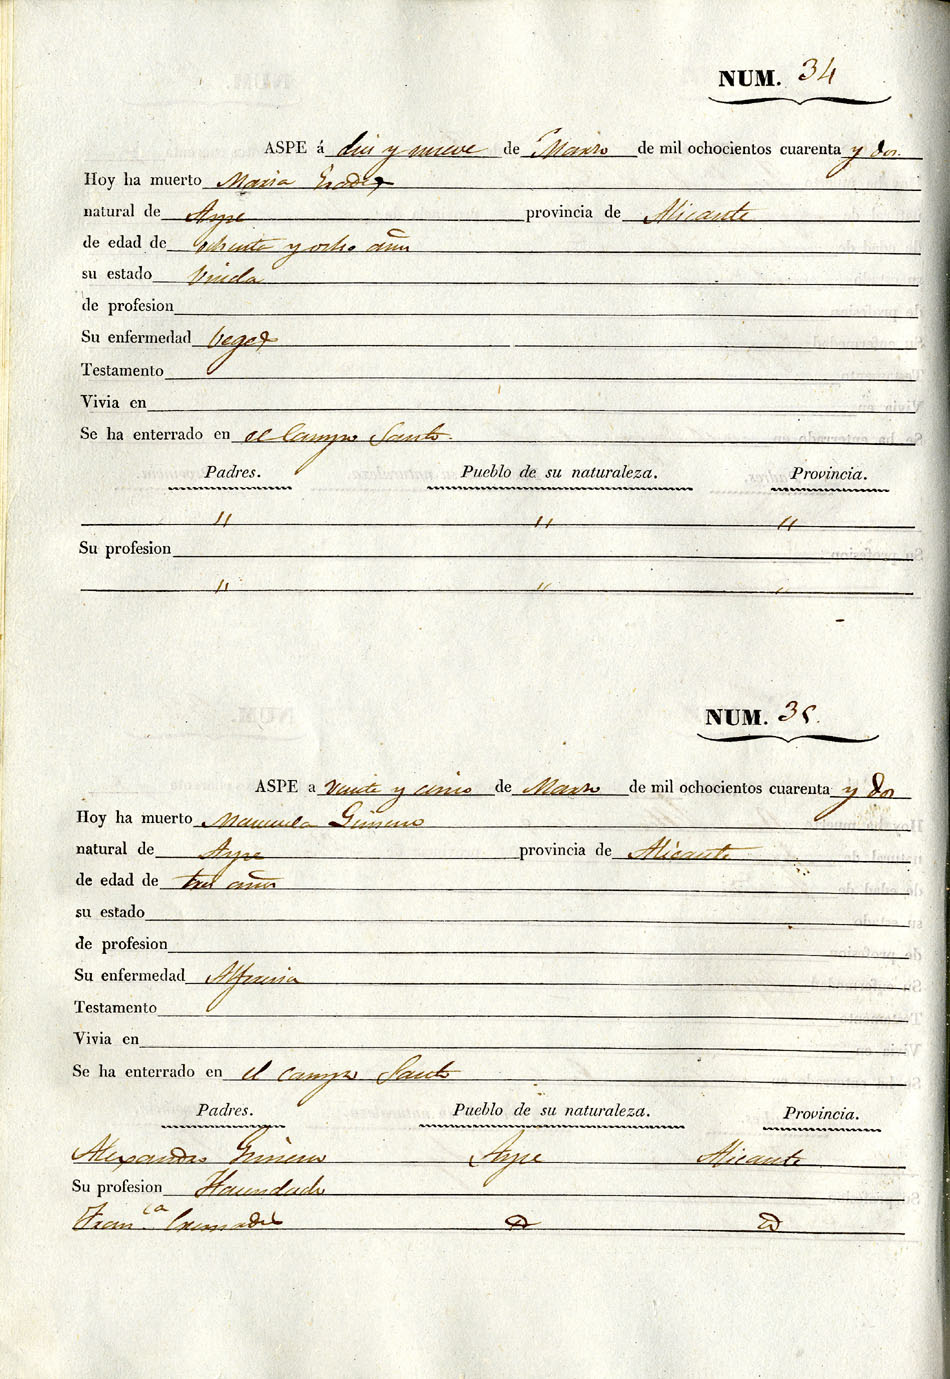 NUM. 34
ASPE á diez y nueve de Marzo de mil ochocientos cuarenta y dos.
Hoy ha muerto Maria
natural de Aspe provincia de Alicante
de edad de ochenta y ocho años
su estado Viuda
de profesion
Su enfermedad Vegez
Testamento
Vivia en
Se ha enterrado en el Campo Santo.
Padres. Pueblo de su naturaleza. Provincia.
" " "
Su profesion
" " "
NUM. 35.
ASPE a veinte y cinco de Marzo de mil ochocientos cuarenta y dos
Hoy ha muerto Manuela Gimeno
natural de Aspe provincia de Alicante
de edad de tres años
su estado
de profesion
Su enfermedad Alferecia
Testamento
Vivia en
Se ha enterrado en el campo Santo
Padres. Pueblo de su naturaleza. Provincia.
Alexandro Gimeno Aspe Alicante
Su profesion Hacendado
Fran.ca Cremades